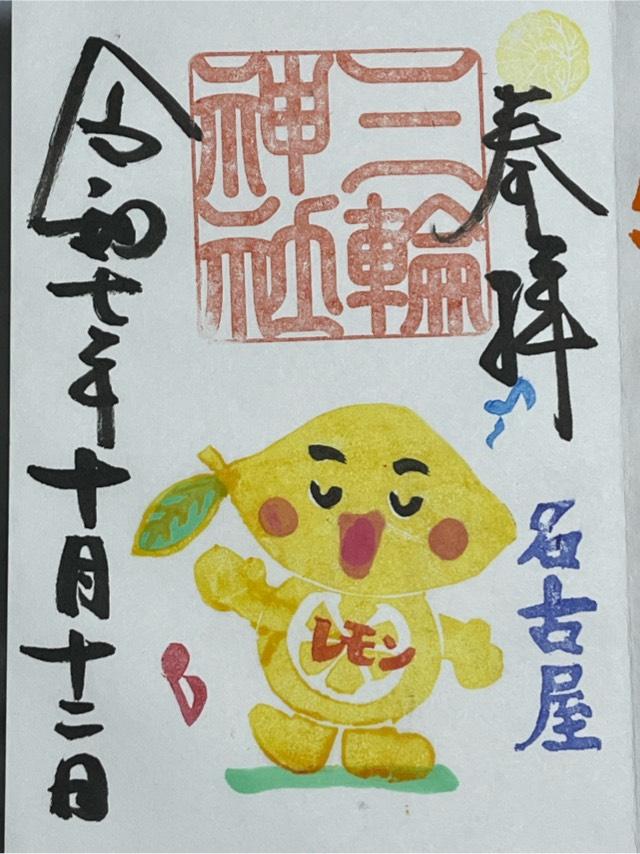 奉拝
名古屋
三輪
神社
レモン
令和七年十月十二日